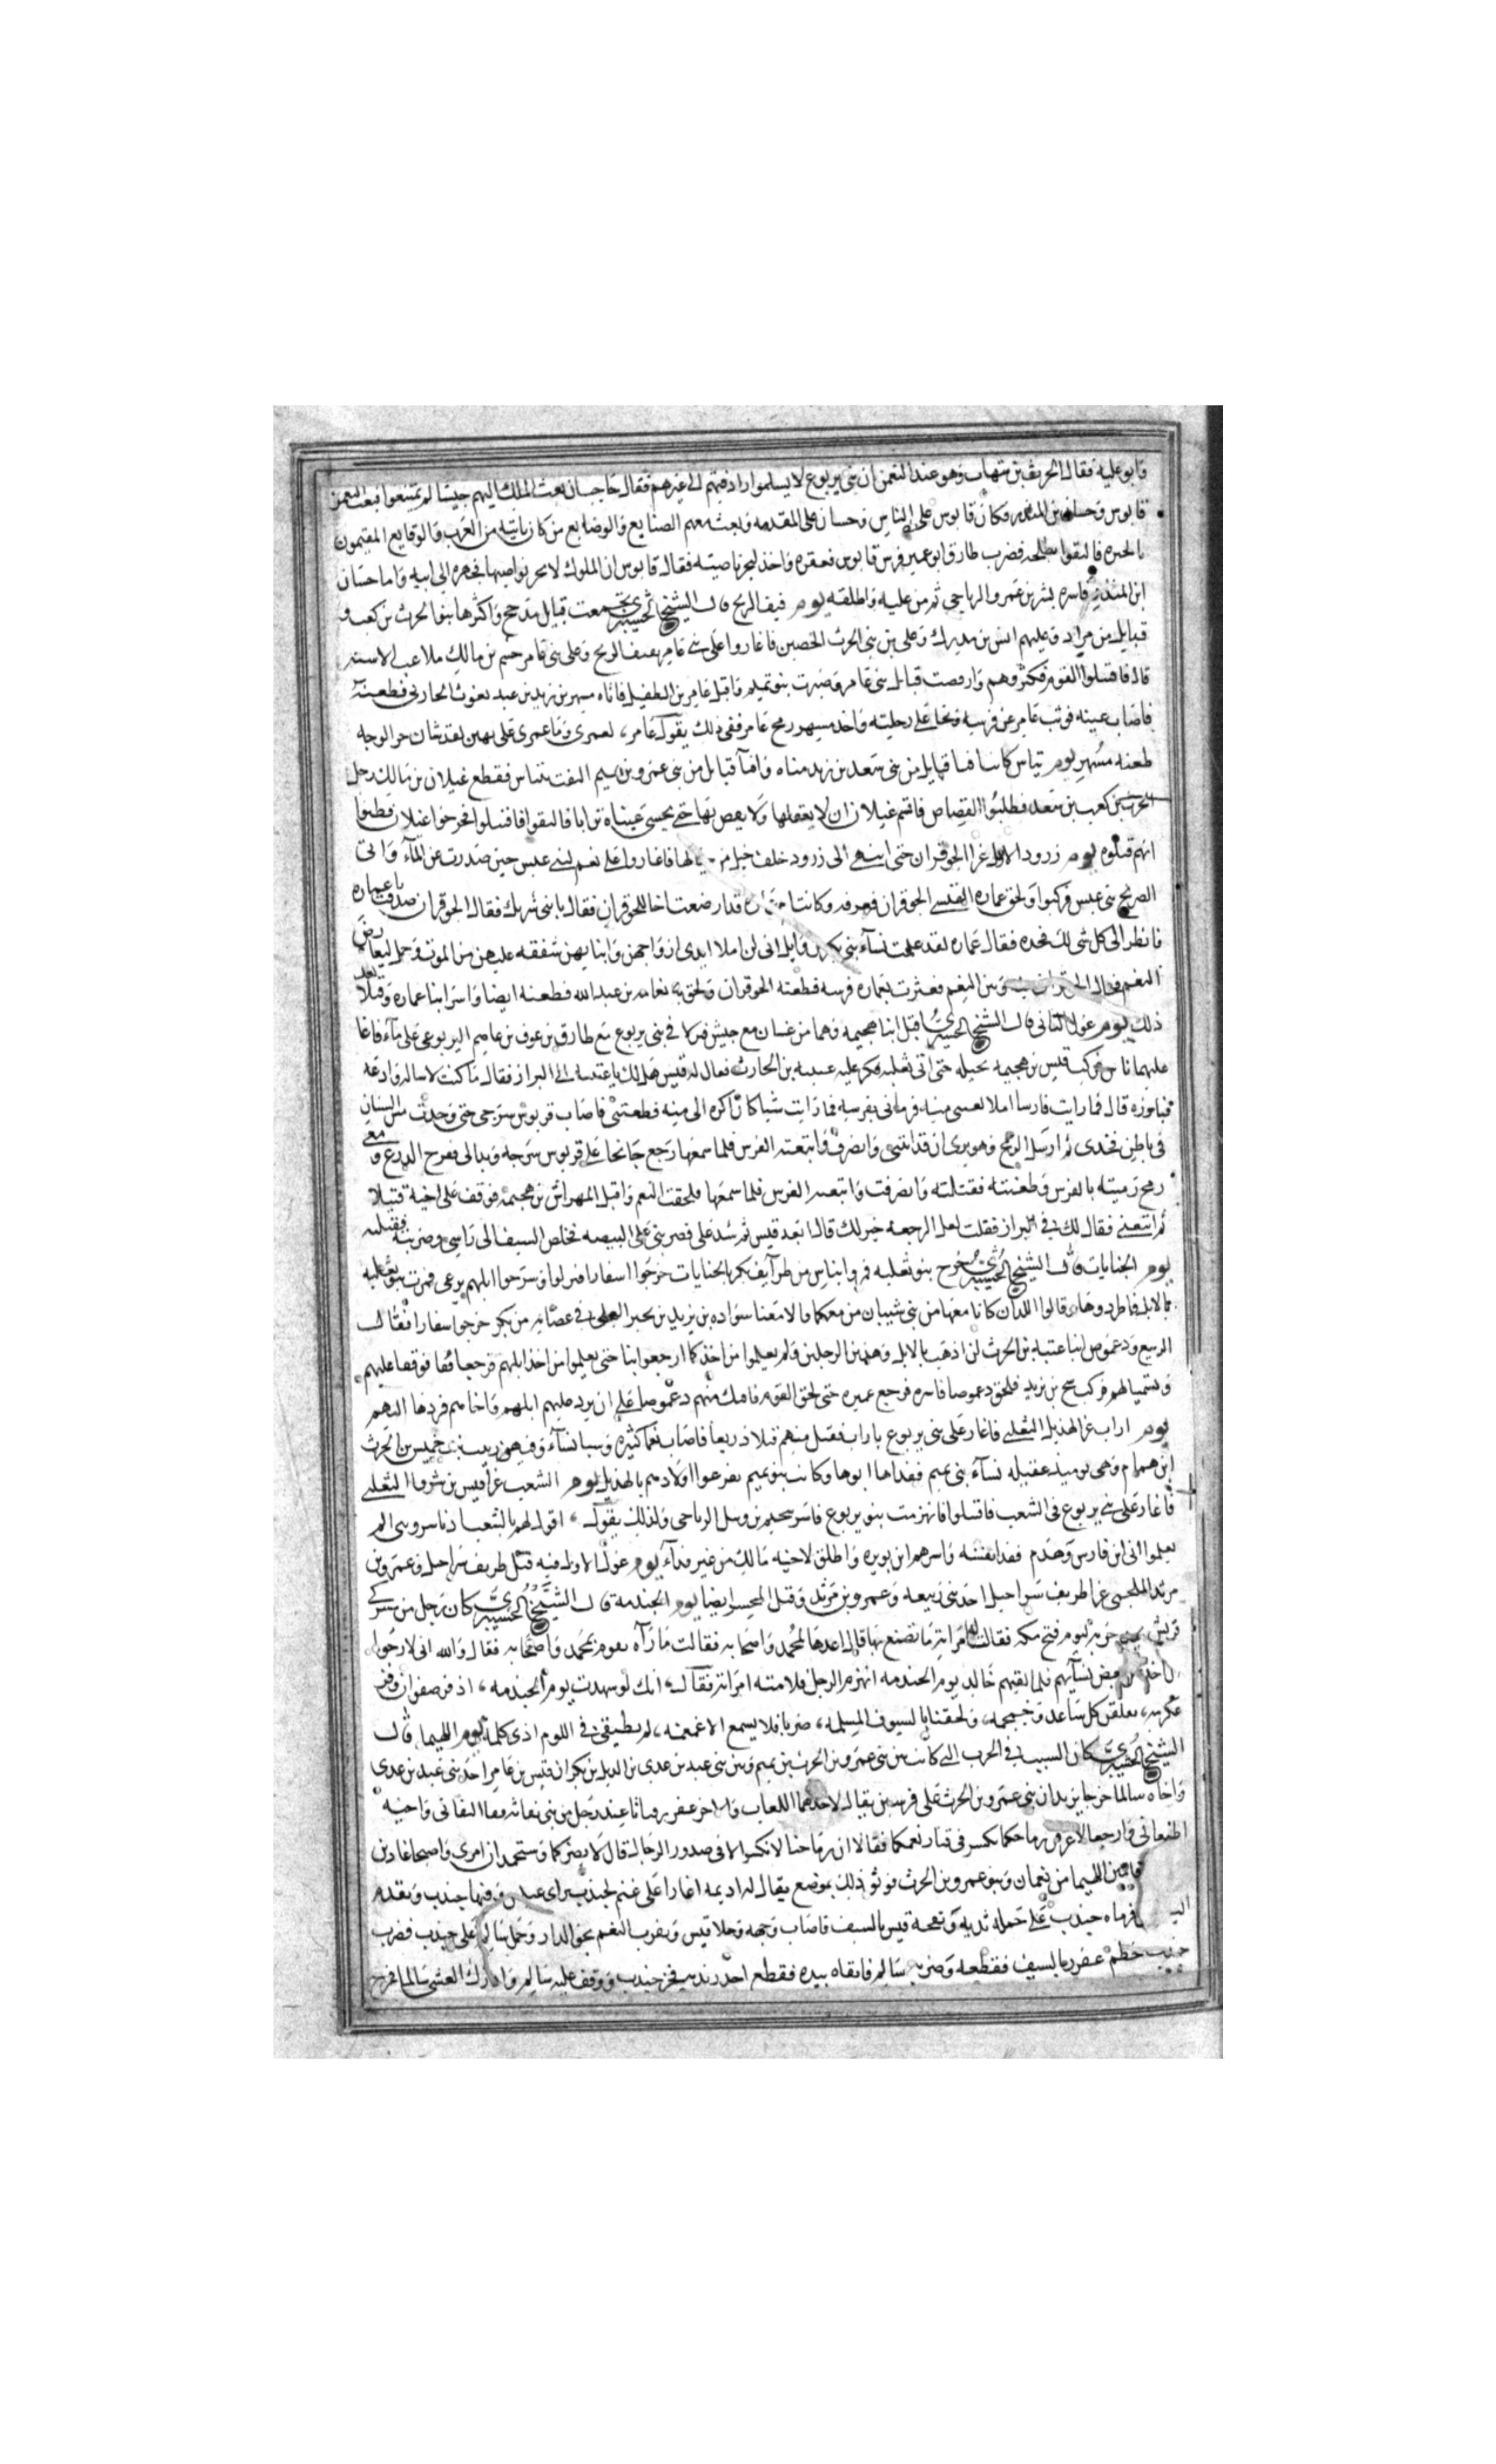 وابو عليه فقال الحريث بن شهاب وهو عند النعمن ان بنى يربوع لا يسلموا رادفتهم الى غيرهم فقال حاجب ان بعث الملك اليهم جيشا لم يمتنعوا فبعث النعمن
قابوس وحسان بن المنذر وكان قابوس على الناس وحسان على المقدمه وبعث معهم الصنايع والوضايع من كان ياتيه من العرب والوقايع المقيمون
بالحيره فالتقوا بطلحه فضرب طارق ابو عمير فرس قابوس فعقره واخذ ليجز ناصيته فقال قابوس ان الملوك لا يجز نواصيها فجهزه الى ابيه واما حسان
ابن المنذر فاسره بشر بن عمرو الرياحي ثم من عليه واطلقه يوم فيف الريح قال الشيخ تجمعت قبايل مذحج واكثرها بنو الحرث بن كعب و
قبايل من مراد وعليهم انس بن مدرك وعلى بنى الحرث الحصين فاغاروا على بنى عامر بفيف الريح وعلى بنى عامر بن مالك ملاعب الاسنه
قال فاقتتلوا القوم فكثروهم وارفضت قبايل بنى عامر وصبرت بنو نمير واقبل عامر بن الطفيل فاتاه مسهر بن زيد بن عبد يغوث الحارثى فطعنه
فاصاب عينه فوثب عامر عن فرسه ونجا على رجليه واخذ مسهر رمح عامر ففى ذلك يقول عامر، لعمرى وما عمرى على بهين لقد شان حر الوجه
طعنه مسهر يوم تياس قبايل من بنى سعد بن زيد مناه وافنا قبايل من بنى عمرو بن تميم التقت بتياس فقطع غيلان بن مالك رجل
الحرث بن كعب بن سعد فطلبوا القصاص فاقسم غيلان ان لا يعقلها ولا يقص بها حتى يحشى عيناه ترابا فالتقوا فاقتتلوا فجرحوا غيلان فظنوا
انهم قتلوه يوم زرود الاول غزا الحوفزان حتى انتهى الى زرود خلف جبل فاغاروا على نعم لبنى عبس حين صدرت عن المآء واتى
الصريخ بنى عبس فركبوا ولحق عماره العبسى الحوفزان فعرفه وكانت قد ارضعت اخا للحوفزان فقال يا بنى شريك فقال الحوفزان صدقت يا عماره
فانظر الى كل شى لك فخذه فقال عماره لقد علمت نسآء بنى بكر بن وايل انى لن املا ايدى ازواجهن وابنايهن شفقه عليهن من الموت فحمل ليعارض
النعم وبين النعم فعثرت بعماره فرسه فطعنه الحوفزان ولحق به نعامه بن عبد الله فطعنه ايضا واسر ابنا عماره وقتلا بعد
ذلك يوم غول الثانى قال الشيخ اقبل ابنا هجيمه وهما من غسان مع جيش فنزلا فى بنى يربوع مع طارق بن عوف بن عاصم اليربوعى على مآء فاغا
عليهما ناس فركب قيس بن هجيمه بخيله حتى اتى ثعلبه فكر عليه عتيبه بن الحارث فقال له قيس هل لك يا عتيبه الى البراز فقال ما كنت لاساله وادعه
فبارزه قال فما رايت فارسا املا لعينى منه فرمانى بفرسه فما رايت شيا كان اكره الى منه فطعننى فاصاب قربوس سرجى حتى وجدت مس السنان
فى باطن فخذى ثم ارسل الرمح وهو يرى ان قد اثبتنى وانصرف فاتبعته الفرس فلما سمعها رجع جانحا على قربوس سرجه وبدا لى فرج الدرع ومعى
رمح رميته بالفرس وطعنته فقتلته وانصرفت واتبعت الفرس فلما سمعها فلحقت النعم واقبل الهرماس بن هجيمه فوقف على اخيه قتيلا
ثم اتبعنى فقال لك فى البراز فقلت لعل الرجعه خير لك قال ابعد قيس ثم شد على فضربنى على البيضه فخلص السيف الى راسى وضربته فقتلته
يوم الجنايات قال الشيخ خرج بنو ثعلبه فمروا بناس من طوايف بكر بالجنايات خرجوا اسفارا فنزلوا وسرحوا ابلهم يرعى فمرت بنو ثعلبه
بالابل فاطردوها وقالوا اللذان كانا معها من بنى شيبان من معكما قالا معنا سواده بن يزيد بن بجير العجلى فى عصابه من بكر خرجوا سفارا فقال
الربيع ودعموص ابنا عتيبه بن الحرث لن اذهب بالابل وهذين الرجلين ولم يعلموا من اخذها ارجعوا بنا حتى يعلموا من اخذ ابلهم فرجعا فوقفا عليهم
وتسميا لهم فركب بن يزيد فلحق دعموصا فاسره فرجع عميره حتى لحق القوم دعموصا على ان يرد عليهم ابلهم واخاهم فردها اليهم
يوم اراب غزا الهذيل الثعلبى فاغار على بنى يربوع باراب فقتل منهم قتلا ذريعا فاصاب نعما كثيره وسبا نسآء وفيهم زينب بنت حميس بن الحرث
ابن همام وهى يوميذ عقيله نسآء بنى تميم ففداها ابوها وكانت بنو تميم يفزعوا اولادهم بالهذيل يوم الشعب غزا قيس بن شرفا الثعلبى
فاغار على بنى يربوع فى الشعب فاقتتلوا فانهزمت بنو يربوع فاسر سحيم بن وثيل الرياحى ولذلك يقول، اقول لهم بالشعب اذ ياسروننى الم
يعلموا انى ابن فارس وهدم فقدا نفسه واسر متمم ابن نويره واطلق لاخيه مالك من غير فدآء يوم غول الاول فيه قتل طريف شراحيل وعمرو بن
مرثد المحلمى غزا طريف شراحيل احد بنى ربيعه وعمرو بن مرثد وقتل المحسر ايضا يوم الخندمه قال الشيخ كان رجل من مشركى
قريش حربه يوم فتح مكه فقالت له امراته ما تصنع بها قال اعدها لمحمد واصحابه فقالت ما اراه يقوم بمحمد واصحابه فقال والله انى لارجو
ان اخذ بعض نسآيهم فلما لقيهم خالد يوم الخندمه انهزم الرجل فلامته امراته فقال، انك لو شهدت يوم الخندمه، اذ فر صفوان وفر
عكرمه، يفلقن كل ساعد وجمجمه، ولحقتنا بالسيوف المسلمه، ضربا فلا يسمع الا غمغمه، لم تنطقى فى اللوم ادنى كلمه يوم اللهيما قال
الشيخ كان السبب فى الحرب التى كانت بين بنى عمرو بن الحرث بن تميم وبين بنى عبد بن عدى بن الديل بن بكر ان قيس بن عامر احد بنى عبد بن عدى
واخاه سالما خرجا يريدان بنى عمرو بن الحرث على فرسين يقال لاحدهما اللعاب والاخر عفزر فباتا عند رجل من بنى نفاثه فقال النفاثى واخيه
اطيعانى وارجعا لاعرفن رماحكما تكسر فى قتار نعمكما فقالا ان رماحنا لا تكسر الا فى صدور الرجال قال لا يضركما وستحمدان امرى واصبحا غاديين
اللهيما من نعمان وبنو عمرو بن الحرث فويق ذلك بموضع يقال له اديمه اغارا على غنم لجندب وفيها جندب وتقدم
فرماه جندب على حلمه ثديه ونفحه قيس بالسيف فاصاب وجهه وخلا قيس ونفرت الغنم نحو الدار وحمل سالم على جندب فضرب
جندب خطم عفزر بالسيف فقطعه وضربه سالم فاتقاه بيده فقطع احد زنديه فخر جندب ووقف عليه سالم وادرك العشى سالما فخرج